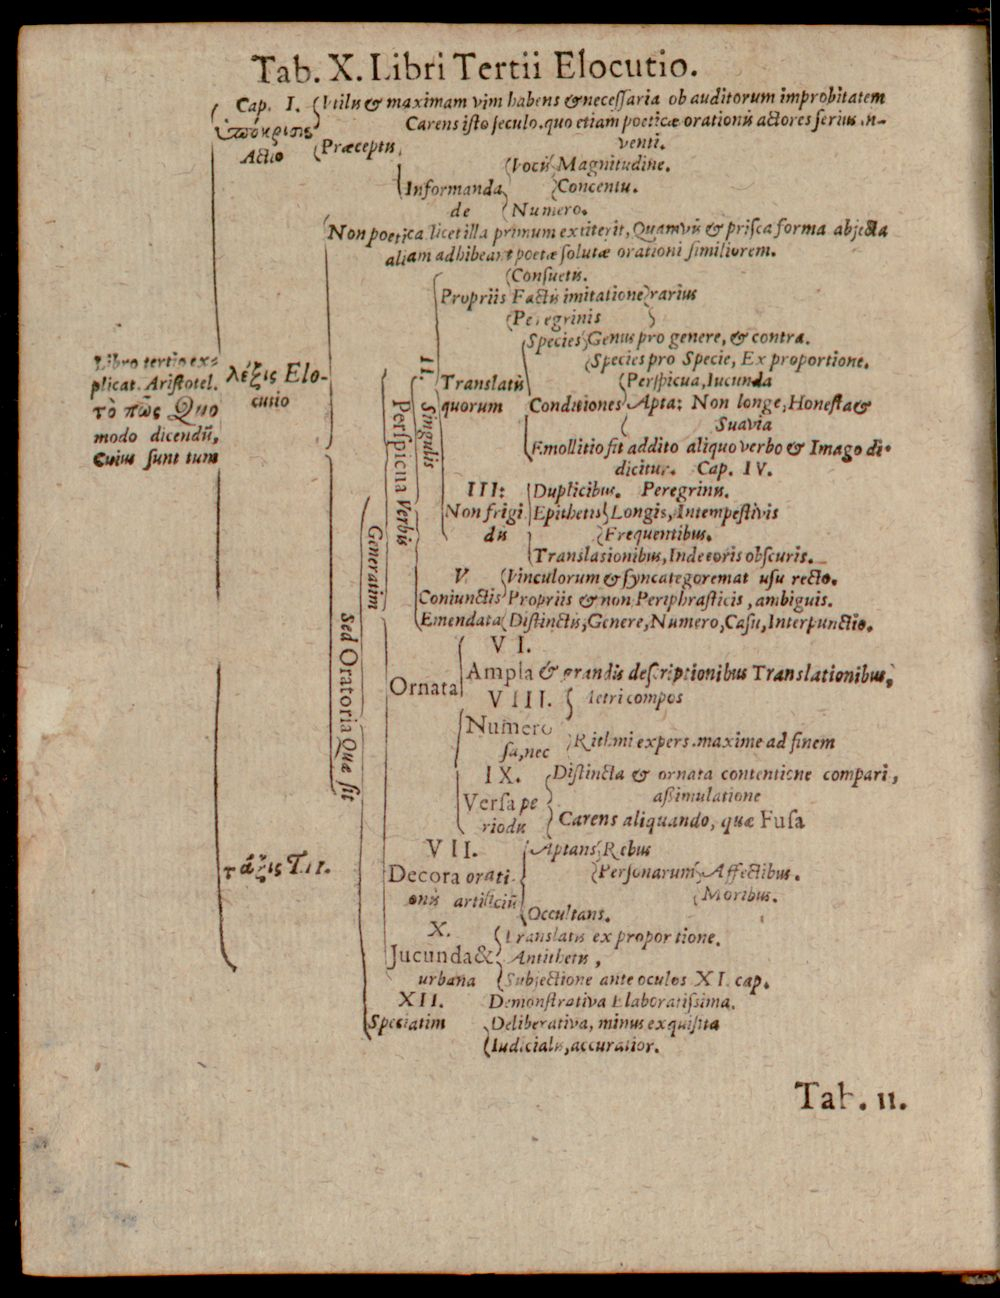 Tab. X. Libri Tertii Elocutio.
Cap. I. Utilis & maximam vim habens & necessaria ob auditorum improbitatem
ὑπόκρισις Carens isto seculo. quo etiam poeticæ orationis actores serius in-
Actio Præceptis venti.
Vocis Magnitudine.
Informanda Concentu.
de Numero.
Non poetica licet illa primum extiterit, Quamvis & prisca forma abjecta
aliam adhibeant poetæ solutæ orationi similiorem.
Consuetis.
Propriis Factis imitatione rarius
Peregrinis
Species Genus pro genere, & contra.
Species pro Specie, Ex proportione.
Translatis Perspicua, Iucunda
quorum Conditiones Apta: Non longe, Honesta &
Suavia
Emollitio fit addito aliquo verbo & Imago di-
dicitur. Cap. IV.
Libro tertio ex-
plicat Aristotel.
τὸ πῶς Quo
modo dicendũ,
Cuius sunt tum
λέξις Elo-
cutio
II. Singulis
Perspicua Verbis
Generatim
Sed Oratoria Quæ sit
III: Duplicibus. Peregrinis.
Non frigi Epithetis Longis, Intempestivis
dis Frequentibus.
Translasionibus, Indecoris obscuris.
V Vinculorum & syncategoremat usu recto.
Coniunctis Propriis & non Periphrasticis, ambiguis.
Emendata Distinctis, Genere, Numero, Casu, Interpunctio.
VI.
Ampla & grandis descriptionibus Translationibus,
Ornata
VIII. Metri compos
Numero
sa, nec Rithmi expers. maxime ad finem
IX. Distincta & ornata contentione compari,
Versa pe aßimulatione
riodis Carens aliquando, quæ Fusa
τάξις
VII. Aptans Rebus
Decora orati- Personarum Affectibus.
onis artificiũ Moribus.
Occultans.
X. Translatis ex proportione.
Jucunda & Antithetis,
urbana Subjectione ante oculos XI. cap.
XII. Demonstrativa Elaboratissima.
Speciatim Deliberativa, minus exquisita
Iudicialis, accuratior.
Tab. 11.